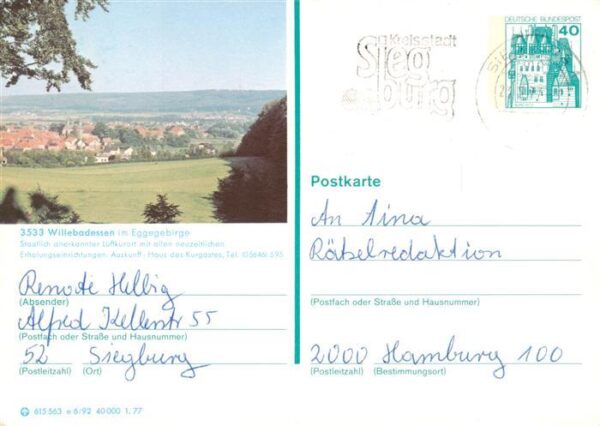 Kreisstadt
Sieg
burg
DEUTSCHE BUNDESPOST
40
3533 Willebadessen im Eggegebirge
Staatlich anerkannter Luftkurort mit allen neuzeitlichen
Erholungseinrichtungen. Auskunft: Haus des Kurgastes, Tel. (05646) 595
Renate Helbig
(Absender)
Alfred Kellerstr 55
(Postfach oder Straße und Hausnummer)
52 Siegburg
(Postleitzahl) (Ort)
615 563 e 6/92 40 000 1. 77
Postkarte
An Tina
Rätselredaktion
(Postfach oder Straße und Hausnummer)
2000 Hamburg 100
(Postleitzahl) (Bestimmungsort)